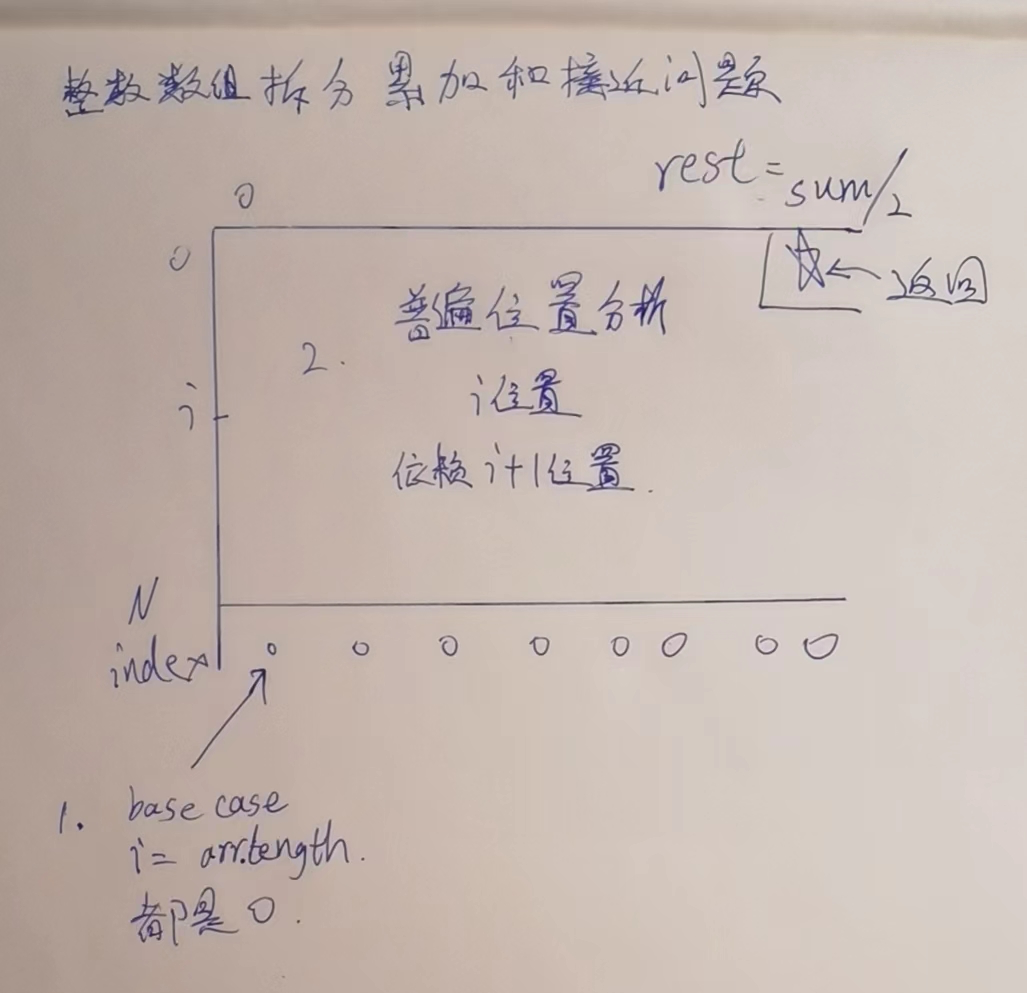 整数数组拆分累加和接近问题
rest=sum/2
0
0
返回
普遍位置分析
2.
i位置
i
依赖i+1位置.
N
index
0 0 0 0 0 0 0 0
1. base case
i= arr.length.
都是0.